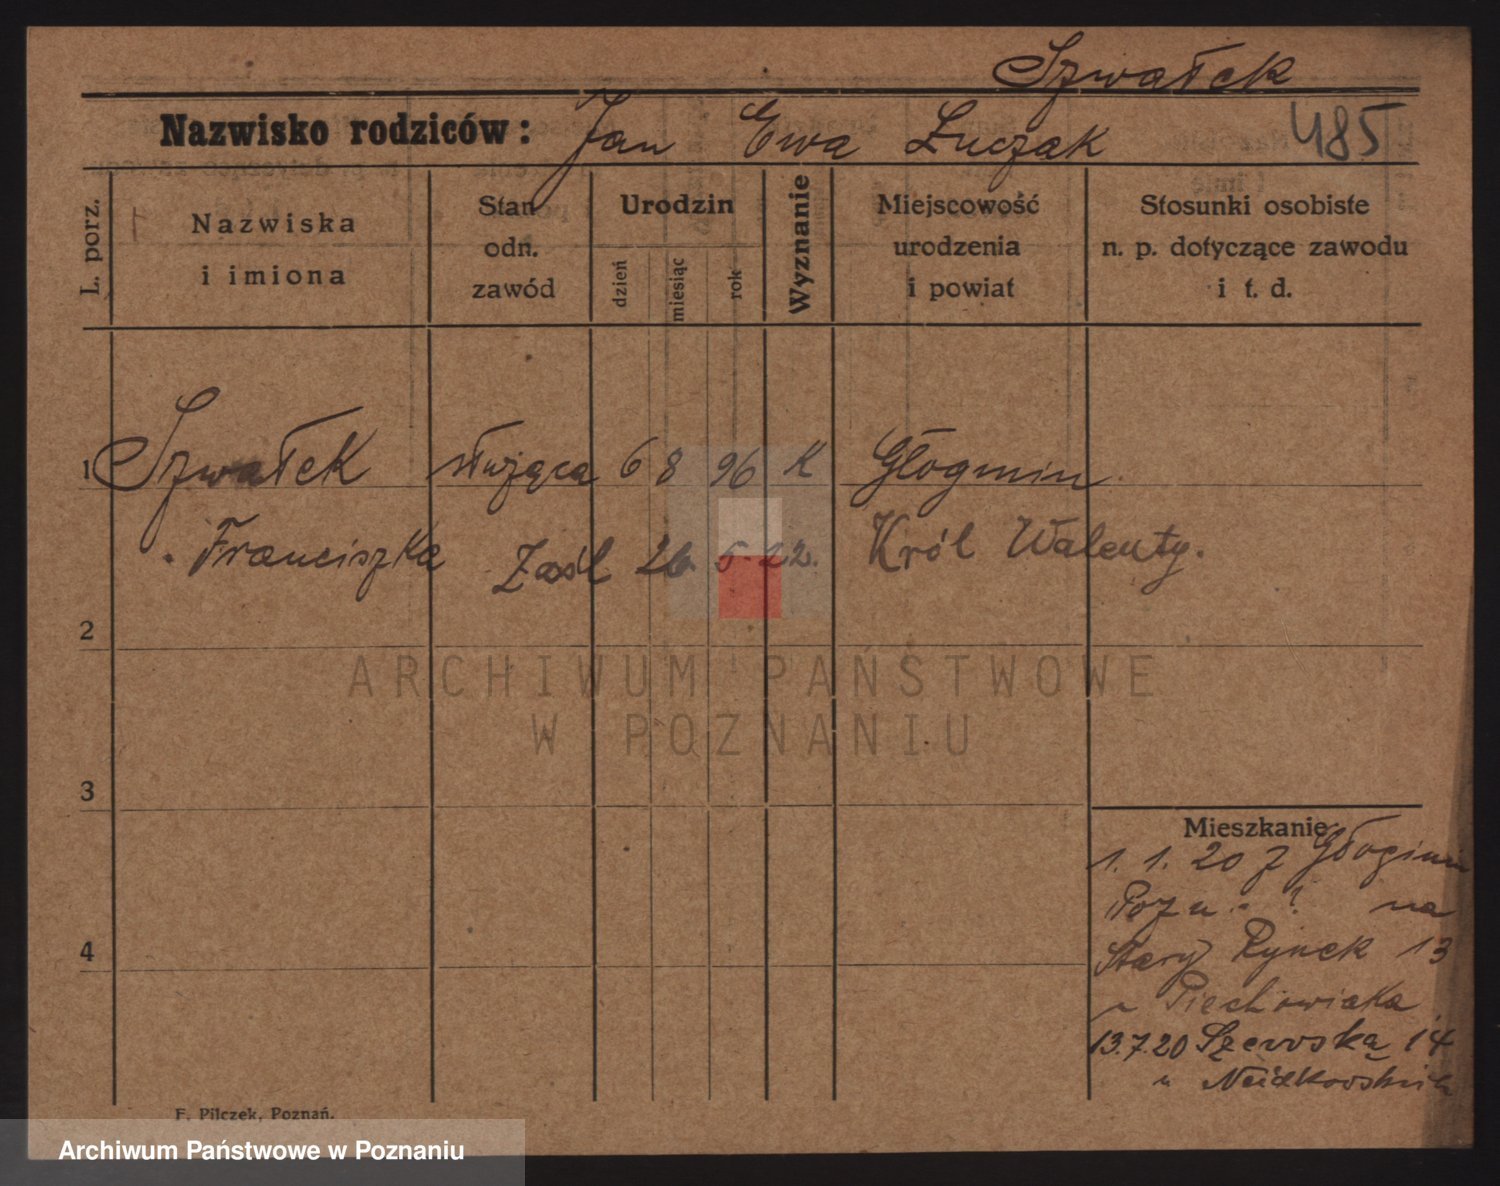 Szwałek
Nazwisko rodziców: Jan Ewa Łuczak 485
L. porz.
Nazwiska
i imiona
Stan
odn.
zawód
Urodzin
dzień
miesiąc
rok
Wyznanie
Miejscowość
urodzenia
i powiat
Stosunki osobiste
n. p. dotyczące zawodu
i t. d.
1 Szwałek służąca 6 8 96 K
Franciszka Zaśl. 26. 5. 22. Król Walenty.
2
ARCHIWUM PAŃSTWOWE
W POZNANIU
3
Mieszkanie
1. 1. 20 z
Pozn. ? na
Stary Rynek 13
u Piechowiaka
4
13.7.20 Szewska 14
u
F. Pilczek, Poznań.
Archiwum Państwowe w Poznaniu